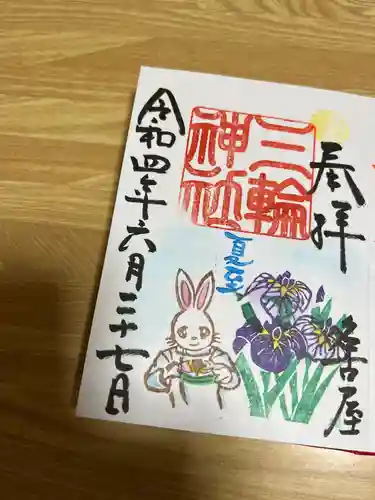 奉拝
名古屋
三輪
神社
夏詣
令和四年六月二十七日